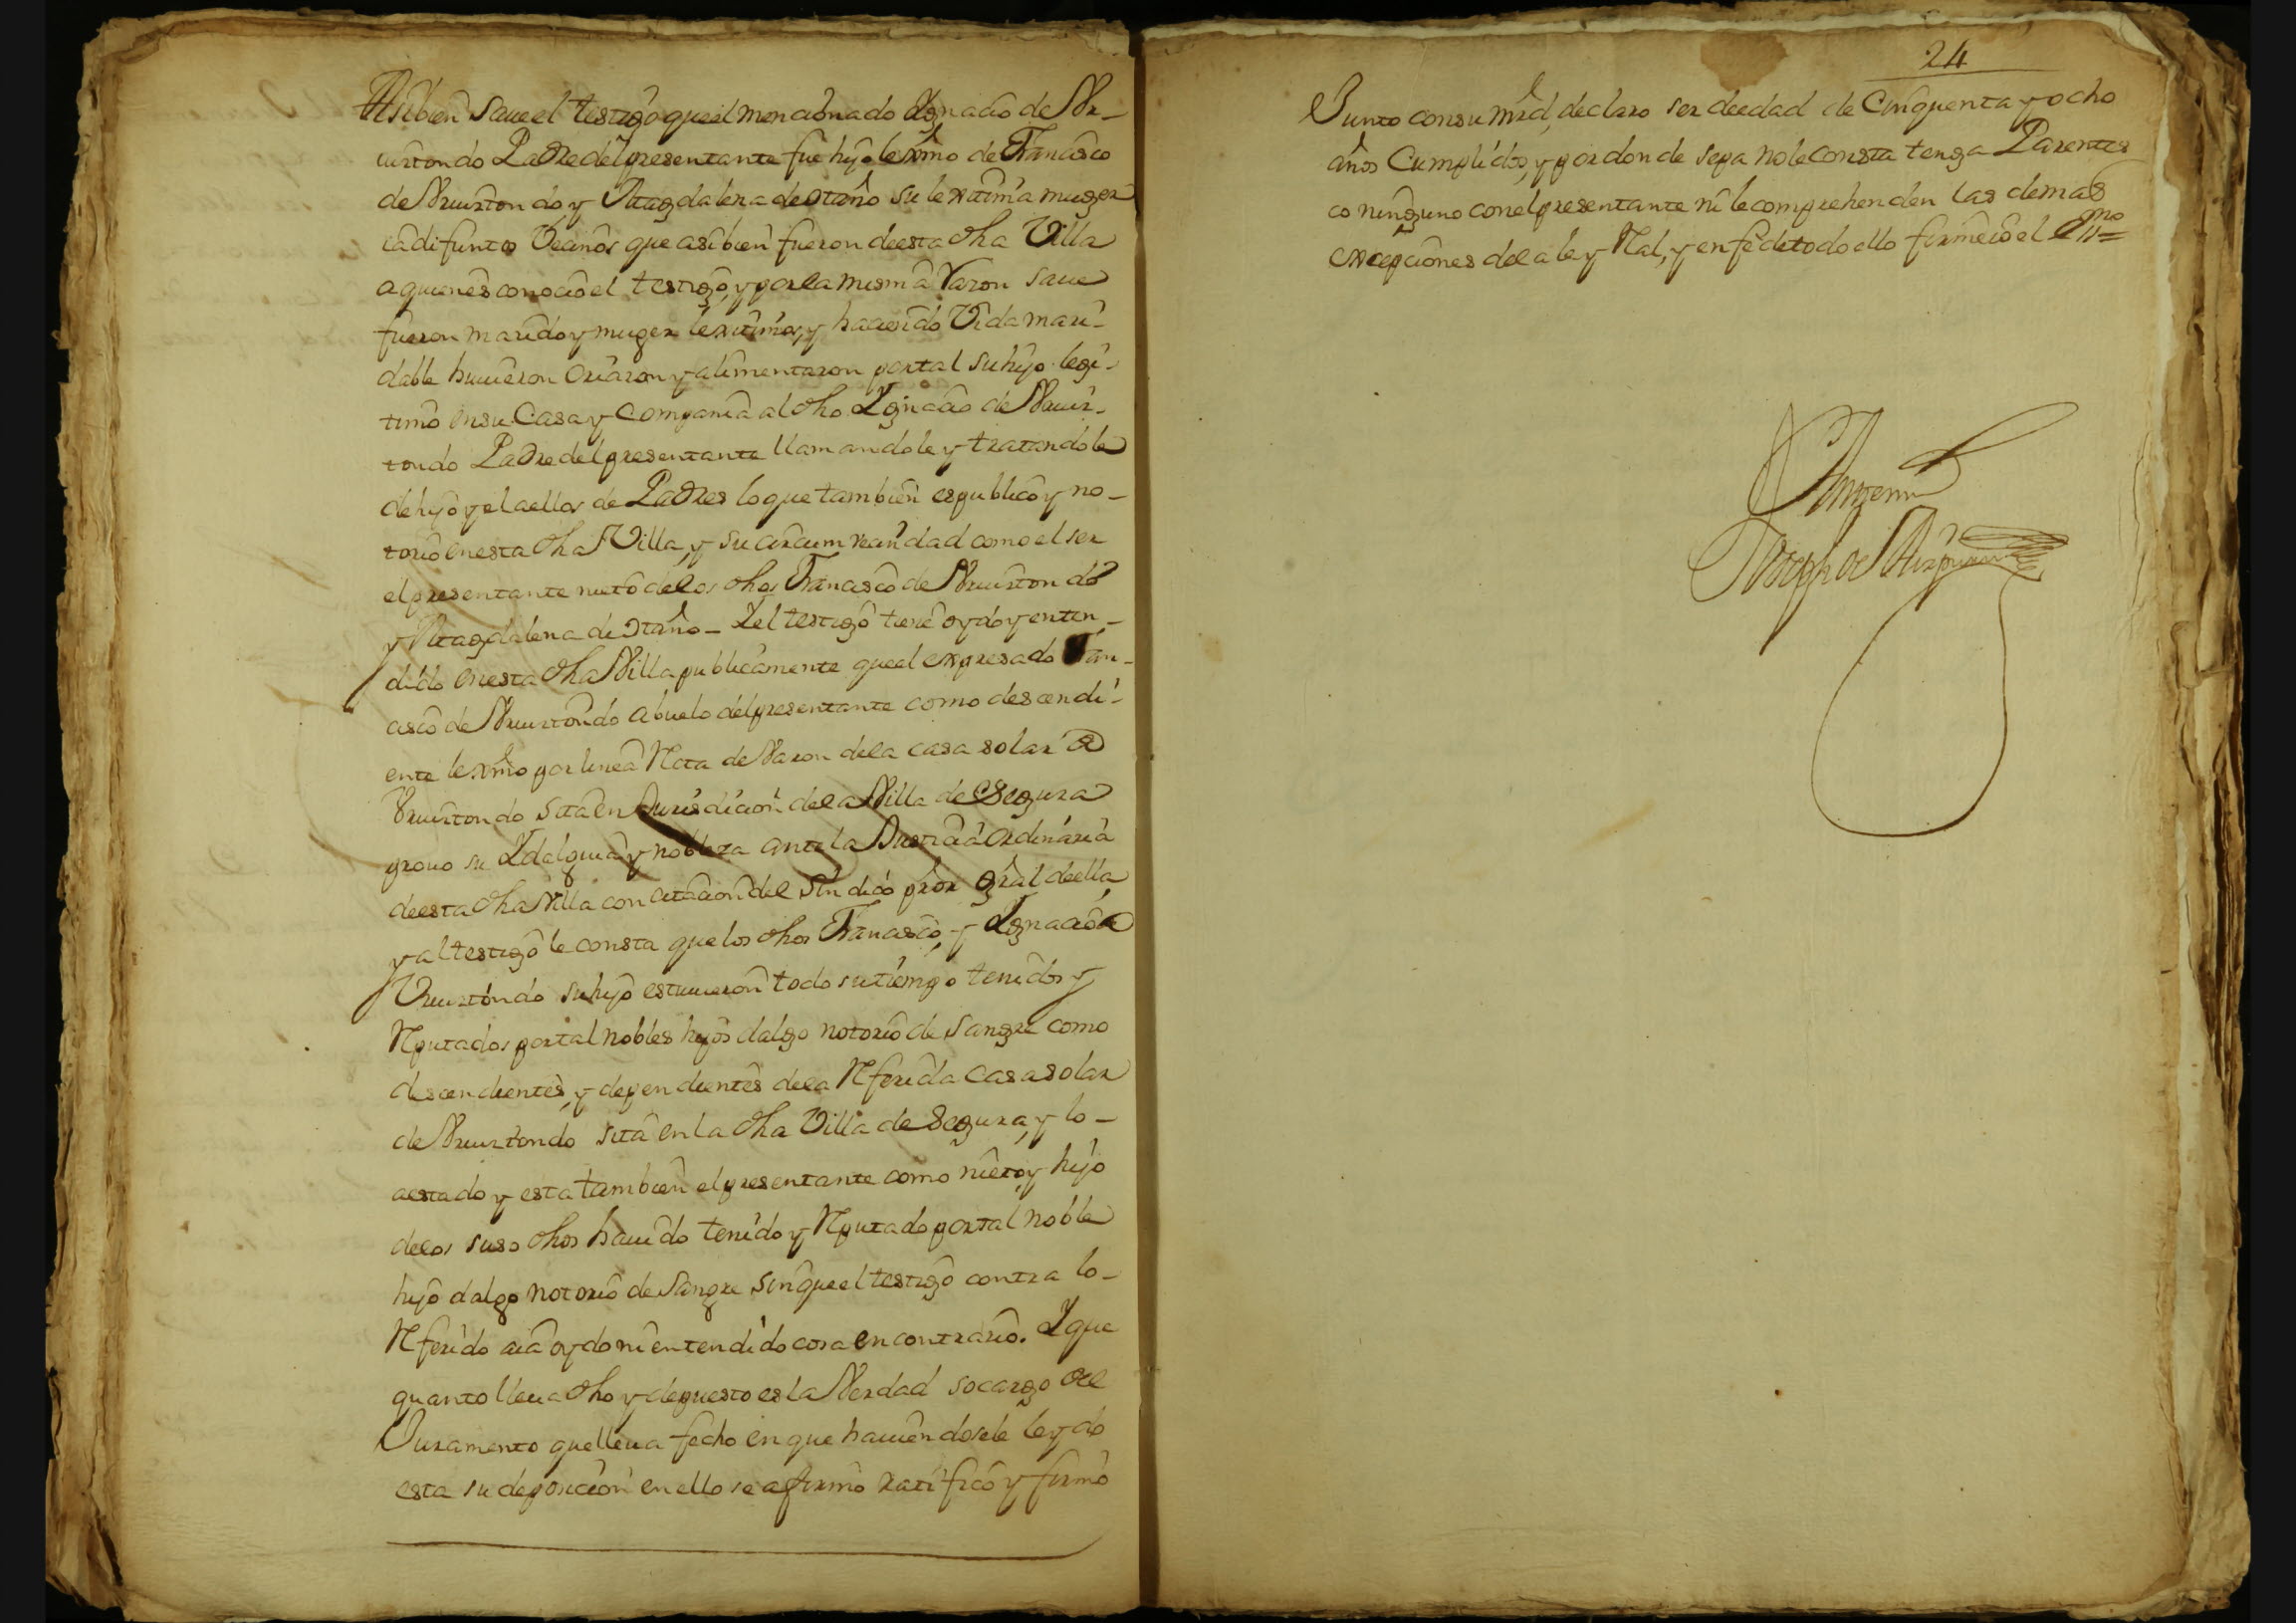 Asi bien saue el testigo que el mencionado Ygnacio de Vr-
uiztondo Padre del presentante fue hijo lexmo de Francisco
de Vruiztondo y Magdalena de Otaño su lexitima muger
ia difuntos Vecinos que asi bien fueron de esta dha Villa
a quienes conocio el testigo, y por la misma Razon saue
fueron marido y muger lexitimos, y haciendo Vida mari-
dable huuieron criaron y alimentaron por tal su hijo legi-
timo en su Casa y Compania al dho Ygnacio de Vruiz-
tondo Padre del presentante llamandole y tratandole
de hijo y el a ellos de Padres lo que tambien es publico y no-
torio en esta dha Villa, y su circumvecindad como el ser
el presentante nieto de los dhos Francisco de Vruiztondo
y Magdalena de Otaño - Y el testigo tiene oydo y enten-
dido en esta dha Villa publicamente que el expresado Fran-
cisco de Vruiztondo abuelo del presentante como descendi-
ente lexmo por linea Recta de Varon de la casa solar de
Vruiztondo sita en Jurisdicion de la Villa de Segura
prouo su Ydalguia y nobleza ante la Justicia ordinaria
de esta dha Villa con citacion del sindico pror gral de ella,
y al testigo le consta que los dhos Francisco, y Ygnacio de
Vruiztondo su hijo estuuieron todo su tiempo tenidos y
Reputados por tal nobles hijos dalgo notorio de sangre como
descendientes, y dependientes de la Referida casa solar
de Vruiztondo sita en la dha Villa de Segura, y lo-
a estado y esta tambien el presentante como nieto, y hijo
de los suso dhos hauido tenido y Reputado por tal noble
hijo dalgo notorio de sangre sin que el testigo contra lo-
Referido aia oydo ni entendido cosa en contrario. Y que
quanto lleua dho y depuesto es la Verdad so cargo del
Juramento que lleua fecho en que hauiendosele leydo
esta su deposicion en ello se afirmo ratifico y firmo
24
Junto con su mrd, declaro ser de edad de Cinquenta y ocho
años Cumplidos, y por donde sepa no le consta tenga Parentes
co ninguno con el presentante ni le comprehenden las demas
excepciones de la ley Real, y en fe de todo ello firme io el Essno=
Ante mi
Joseph de